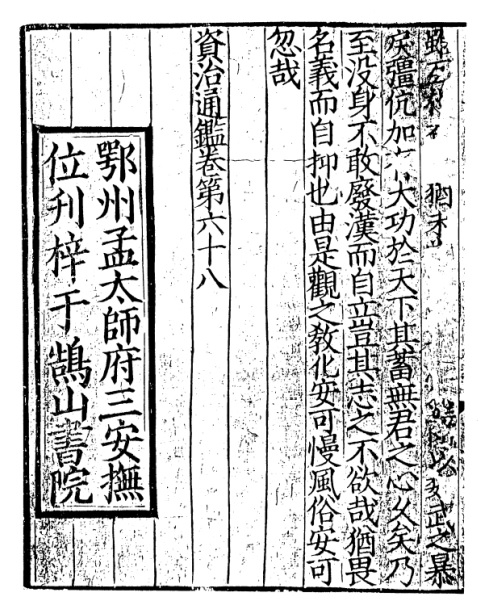 雖猶未武之暴
戾彊伉加大功於天下其蓄無君之心久矣乃
至没身不敢廢漢而自立豈其志之不欲哉猶畏
名義而自抑也由是觀之教化安可慢風俗安可
忽哉
資治通鑑卷第六十八
鄂州孟太師府三安撫
位刋梓于鵠山書院